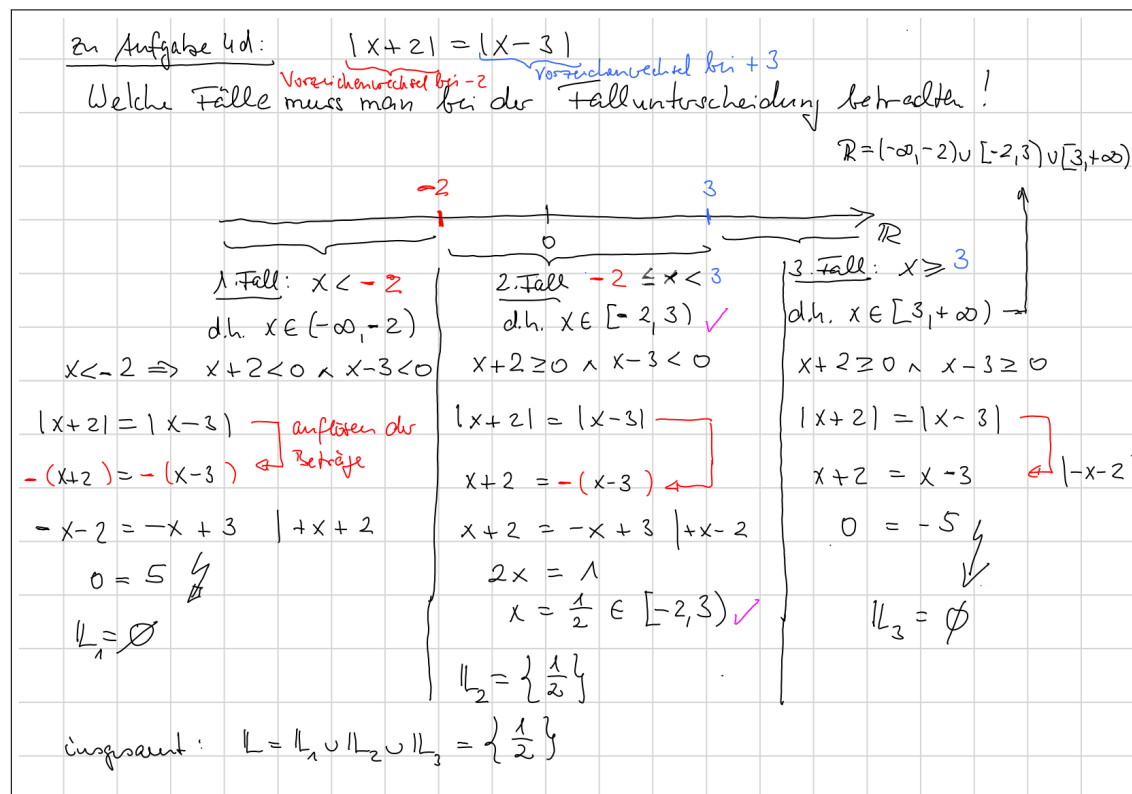 zu Aufgabe 4d: |x+2| = |x-3|
Vorzeichenwechsel bei -2 Vorzeichenwechsel bei +3
Welche Fälle muss man bei der Fallunterscheidung betrachten!
ℝ = (-∞,-2) ∪ [-2,3) ∪ [3,+∞)
-2 3
0 ℝ
1. Fall: x < -2
d.h. x ∈ (-∞, -2)
x<-2 ⇒ x+2<0 ∧ x-3<0
|x+2| = |x-3| auflösen der
Beträge
-(x+2) = -(x-3)
-x-2 = -x+3 |+x+2
0 = 5 ↯
𝕃₁ = ∅
2. Fall -2 ≤ x < 3
d.h. x ∈ [-2, 3) ✓
x+2≥0 ∧ x-3<0
|x+2| = |x-3|
x+2 = -(x-3)
x+2 = -x+3 |+x-2
2x = 1
x = 1/2 ∈ [-2,3) ✓
𝕃₂ = {1/2}
3. Fall: x ≥ 3
d.h. x ∈ [3,+∞)
x+2≥0 ∧ x-3≥0
|x+2| = |x-3|
x+2 = x-3 |-x-2
0 = -5 ↯
𝕃₃ = ∅
insgesamt: 𝕃 = 𝕃₁ ∪ 𝕃₂ ∪ 𝕃₃ = {1/2}